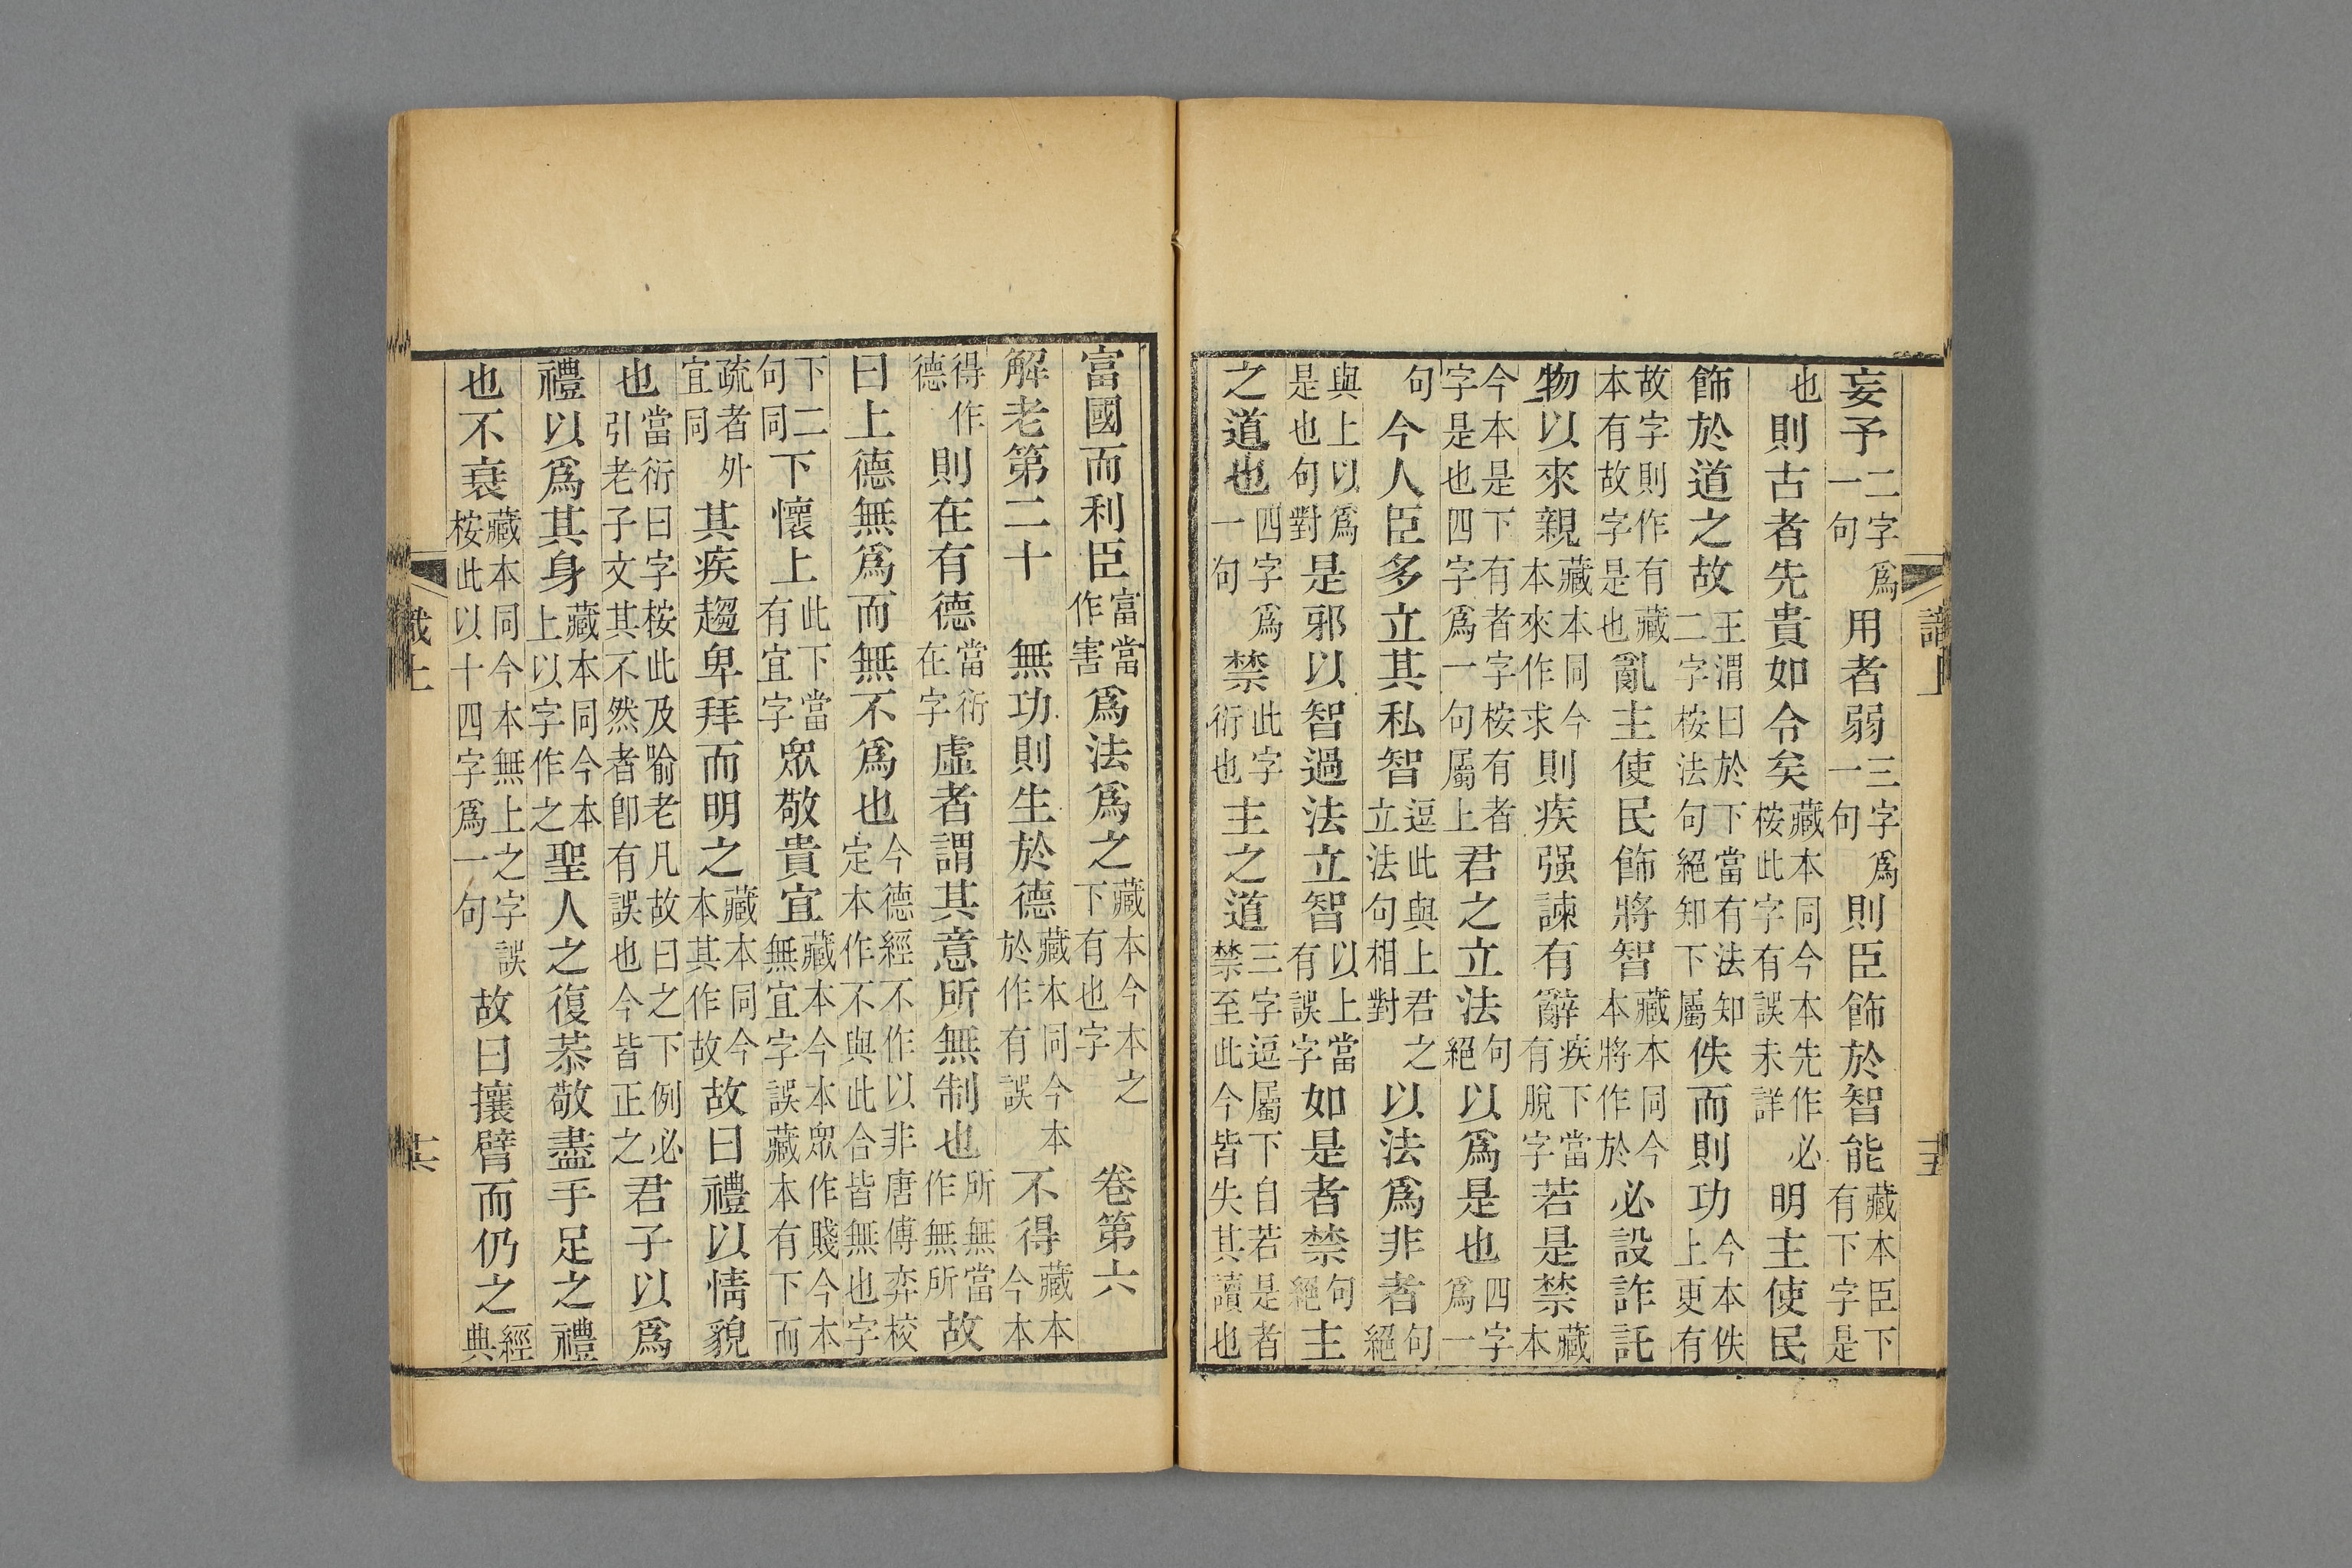 妄予二字爲一句用者弱三字爲一句則臣飾於智能藏本臣下有下字是
也則古者先貴如令矣藏本同今本先作必桉此字有誤未詳明主使民
飾於道之故王渭曰於下當有法知二字桉法句絕知下屬佚而則功今本佚上更有
故字則作有藏本有故字是也亂主使民飾將智藏本同今本將作於必設詐託
物以來親藏本同今本來作求則疾强諫有辭疾下當有脫字若是禁藏本
今本是下有者字桉有者字是也四字爲一句屬上君之立法句絕以爲是也四字爲一
句今人臣多立其私智逗此與上君之立法句相對以法爲非者句絕
與上以爲是也句對是邪以智過法立智以上當有誤字如是者禁句絕主
之道也四字爲一句禁此字衍也主之道三字逗屬下自若是者禁至此今皆失其讀也
富國而利臣富當作害爲法爲之藏本今本之下有也字卷第六
解老第二十 無功則生於德藏本同今本於作有誤不得藏本今本
得作德則在有德當衍在字虛者謂其意所無制也所無當作無所故
曰上德無爲而無不爲也今德經不作以非唐傅弈校定本作不與此合皆無也字
下二句同下懷上此下當有宜字眾敬貴宜藏本今本眾作賤今本無宜字誤藏本有下而
疏者外宜同其疾趨卑拜而明之藏本同今本其作故故曰禮以情貌
也當衍曰字桉此及喻老凡故曰之下例必引老子文其不然者卽有誤也今皆正之君子以爲
禮以爲其身藏本同今本上以字作之聖人之復恭敬盡手足之禮
也不衰藏本同今本無上之字誤桉此以十四字爲一句故曰攘臂而仍之經典